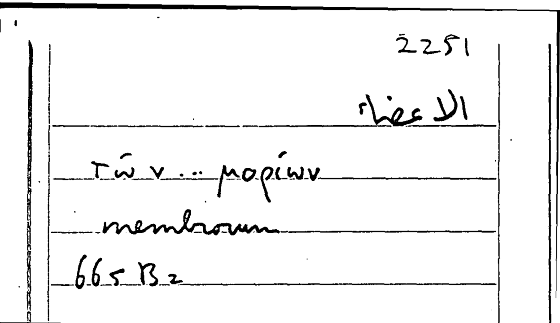 2251
الاعضاء
τῶν... μορίων
membrorum
665 B2